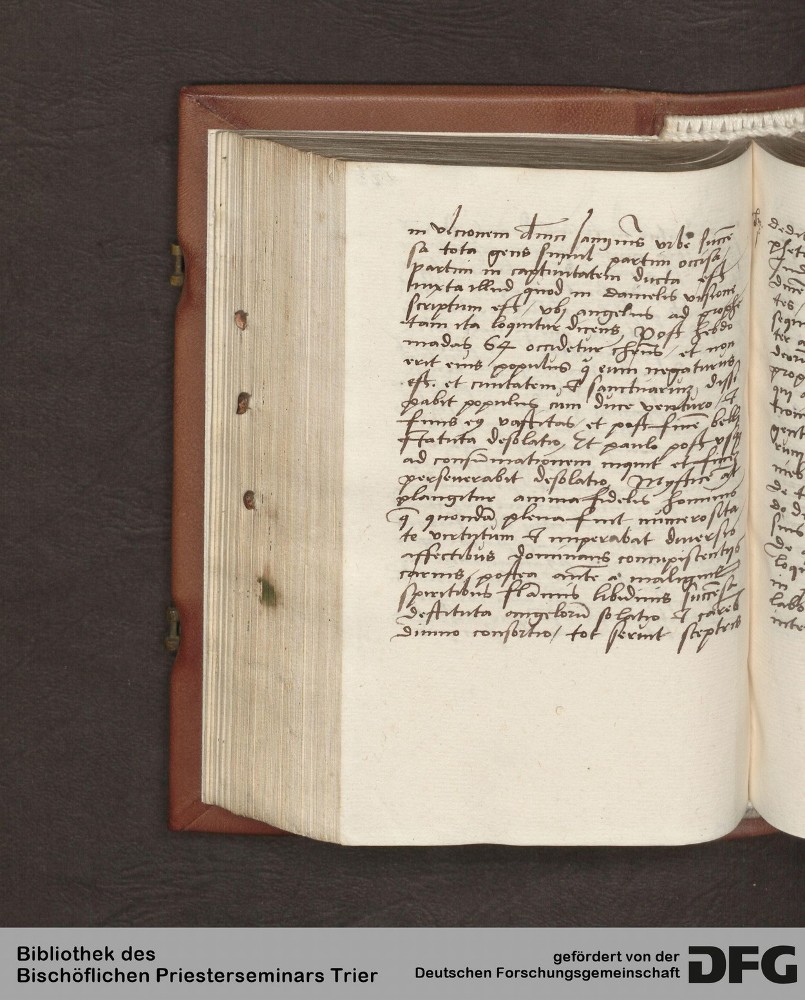 in vlcionem dinci sanginis vrbe succe
sa tota gens simul partim occisa
partim in captiuitatem ducta est
iuxta illud quod in danielis visione
scriptum est / vbi angelus ad prophe
tam ita loquitur dicens, Post hebdo
madas 64 occidetur christus et non
erit eius populus q eum negaturus
est. et ciuitatem & sanctuarium dissi
pabit populus cum duce venturo / &
finis eius vastitas et post fine belli
statuta desolatio, Et paulo post vsq
ad consummationem inquit et finem
perseuerabit desolatio, Mystice at
plangitur anima fidelis hominis
q quondam plena fuit numerosita
te virtutum & imperabat diuersis
affectibus dominans concupiscentiis
carnis, postea ante a malignis
spiritibus flammis libidinis succensa
destituta angelorum solatio & carens
diuino consortio / tot seruit sceptris
Bibliothek des
Bischöflichen Priesterseminars Trier
gefördert von der
Deutschen Forschungsgemeinschaft
DFG